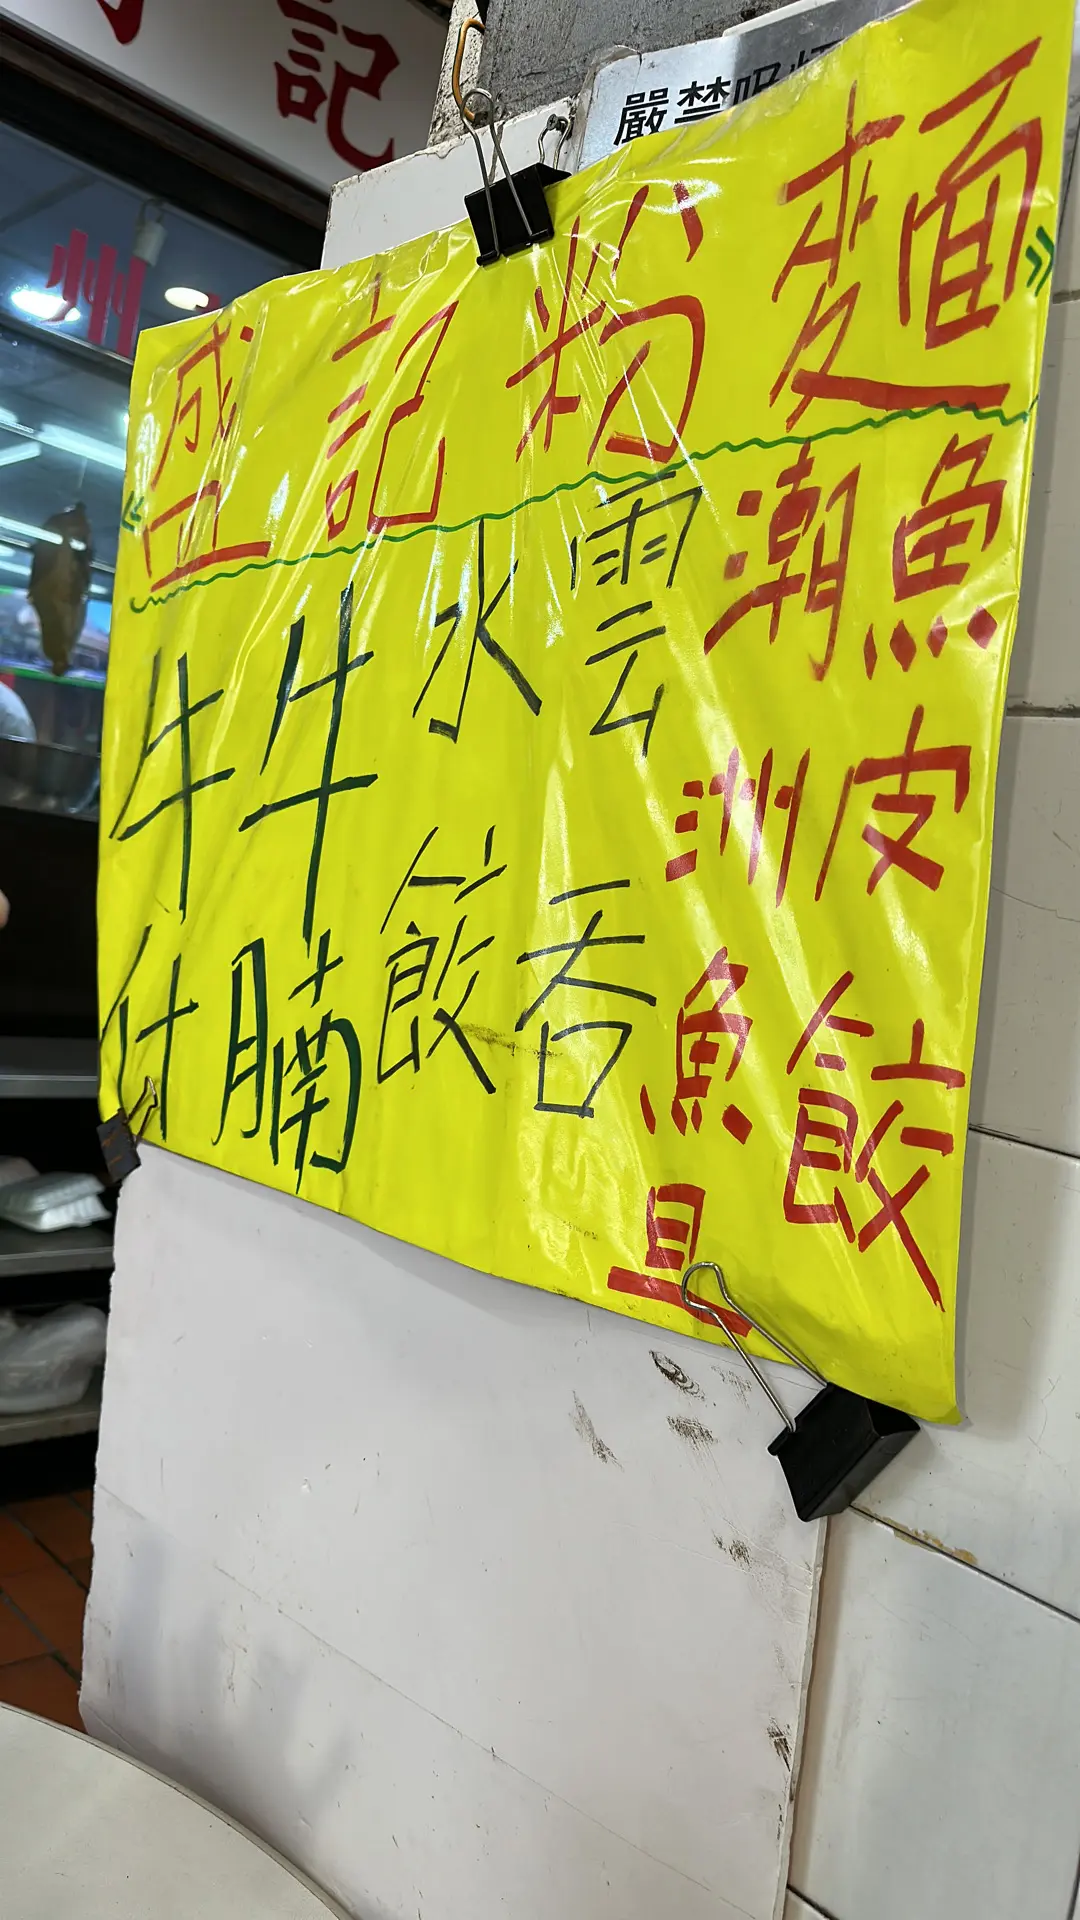 記
州
嚴禁吸
《盛記粉麵》
魚皮餃
潮洲魚旦
雲吞
水餃
牛腩
牛什